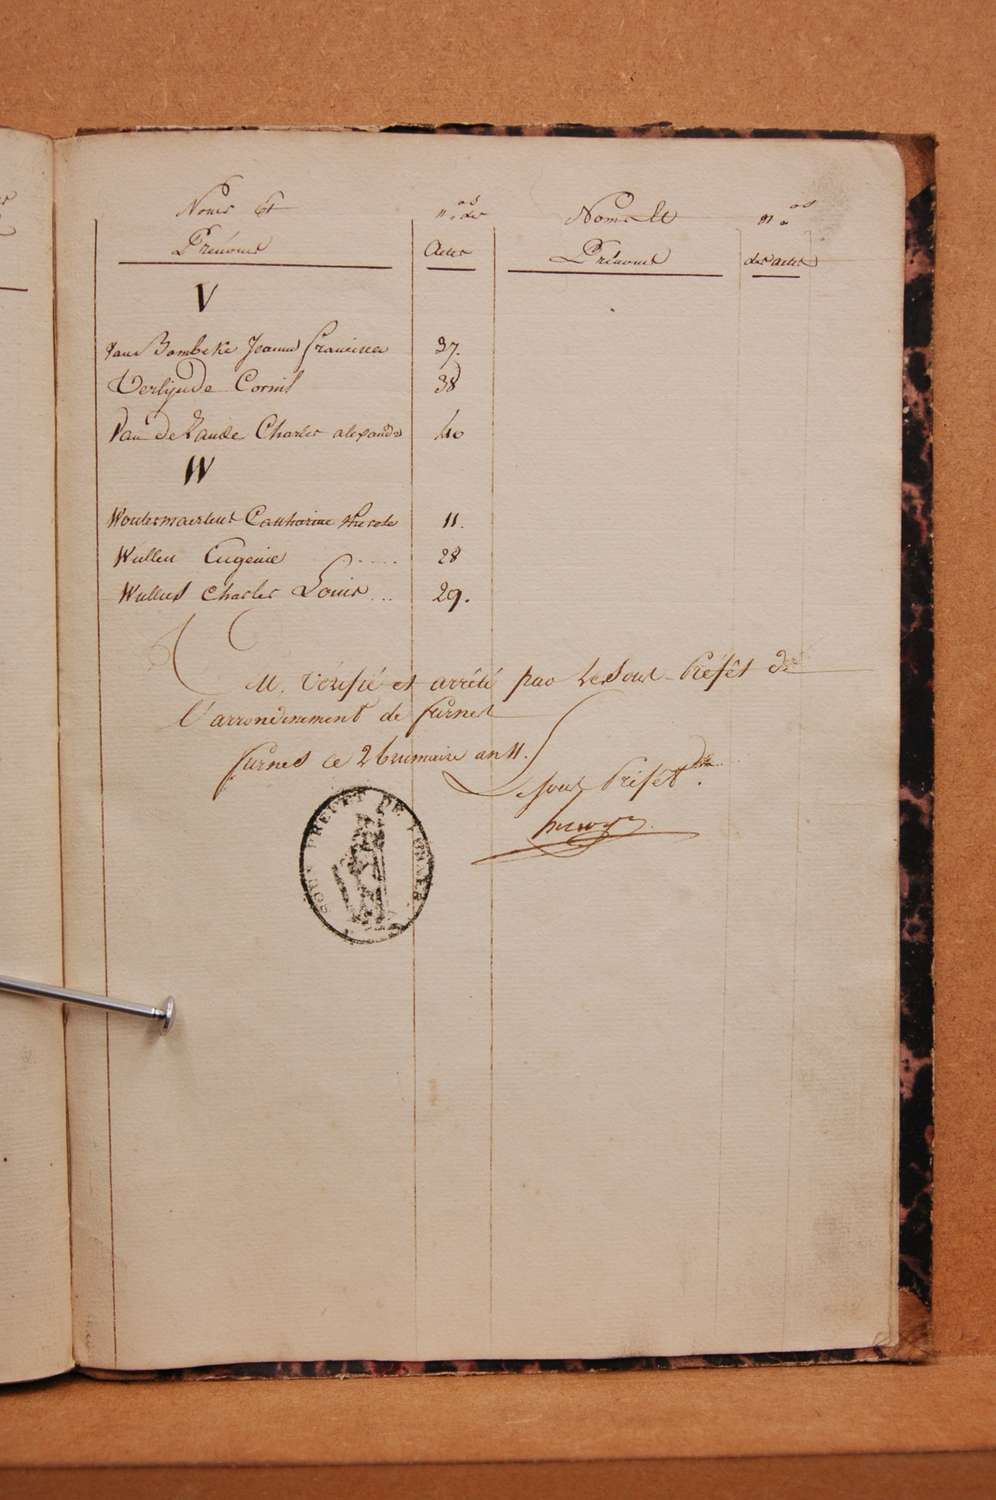 Noms Et
Prénoms
n.os des
Actes
Noms Et
Prénoms
n.os
des actes
V
Van Bombeke Jeanne Francisca 37.
Verlynde Cornil 38
Van De Zande Charles alexandre 40
W
Woutermaertens Catharine 11.
Wullen Eugenie ..... 28
Wullus Charles Louis ... 29.
Vu, Vérifié et arrêté par Le Sous Préfêt De
L'arrondissement de Furnes
Furnes ce 2 brumaire an 11.
Le Sous Préfet
SOUS PREFET DE FURNES